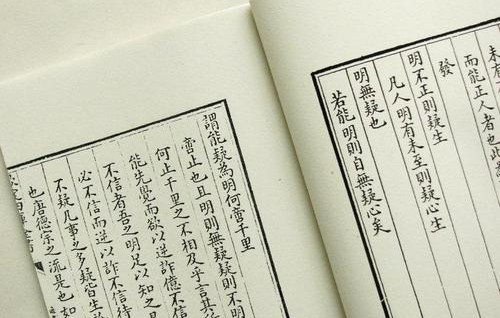 未
而能正人者也
發
明不正則疑生
凡人明有未至則疑心生
明無疑也
若能明則自無疑心矣
謂能疑為明何啻千里
啻止也且明則無疑疑則不明
何止千里之不相及乎言其
能先覺而欲以逆詐億不信
不信者吾之明足以知之
必不信而逆以詐不信待
不疑凡事之多疑皆生於
也唐德宗之流是也如